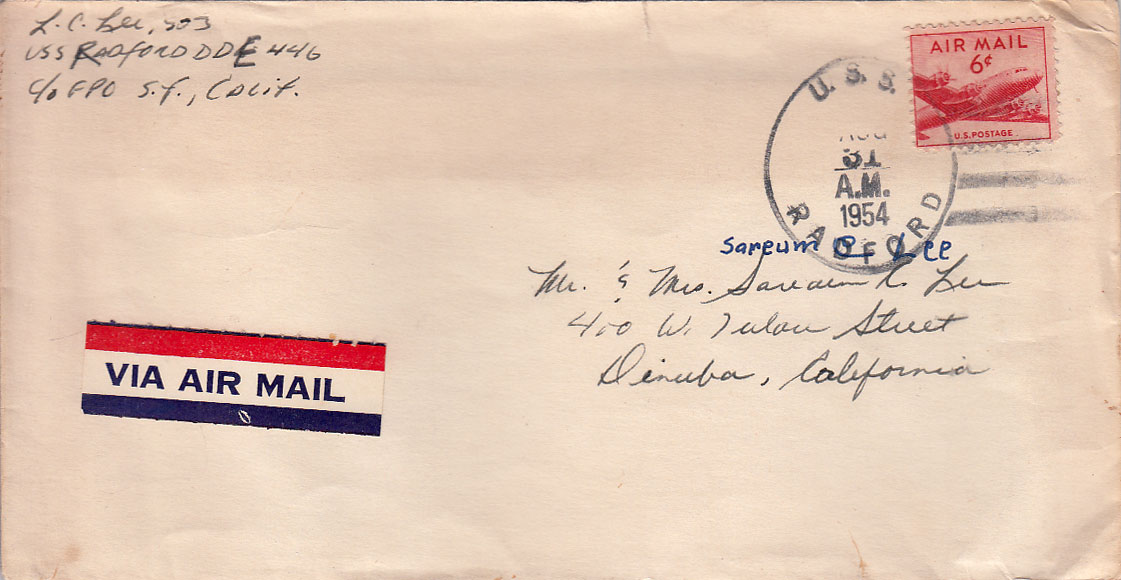 L. C. Lee, SO3
USS RADFORD DDE 446
c/o FPO S.F., Calif.
AIR MAIL
6¢
U.S. POSTAGE
U. S. S.
AUG
31
A.M.
1954
RADFORD
Sareum R Lee
Mr. & Mrs. Sareum R. Lee
400 W. Tulare Street
Dinuba, California
VIA AIR MAIL